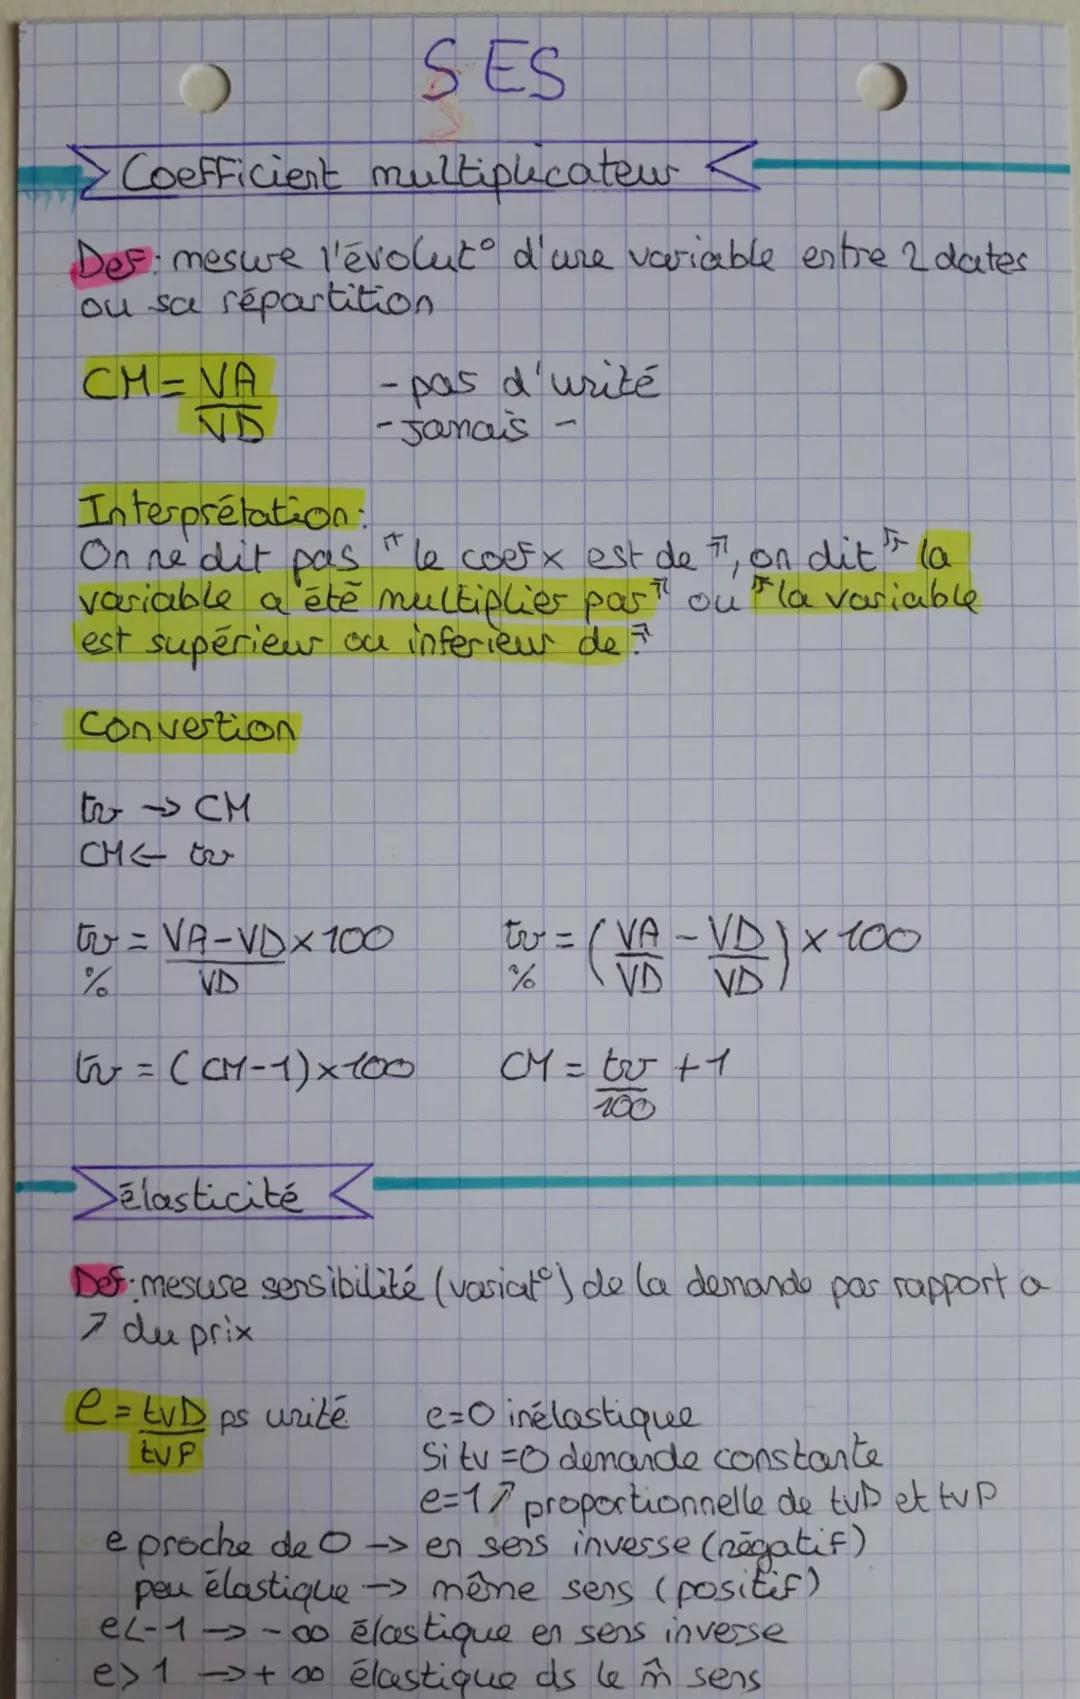 SES
Coefficient multiplicateur
Def: mesure l'évolut° d'une variable entre 2 dates
ou sa répartition
CM = VA/VD - pas d'unité
- jamais -
Interprétation:
On ne dit pas " le coef x est de ", on dit " la
variable a été multiplier par " ou " la variable
est supérieur ou inferieur de "
Convertion
tv → CM
CM ← tv
tv % = VA-VD/VD × 100 tv % = (VA/VD - VD/VD) × 100
tv = (CM-1)×100 CM = tv/100 + 1
élasticité
Def: mesure sensibilité (variat°) de la demande par rapport a
↗ du prix
e = tvD/tvP ps unité e=0 inélastique
Si tv =0 demande constante
e=1 ↗ proportionnelle de tvD et tvP
e proche de 0 → en sens inverse (négatif)
peu élastique → même sens (positif)
e<-1 → - ∞ élastique en sens inverse
e>1 → + ∞ élastique ds le m̂ sens